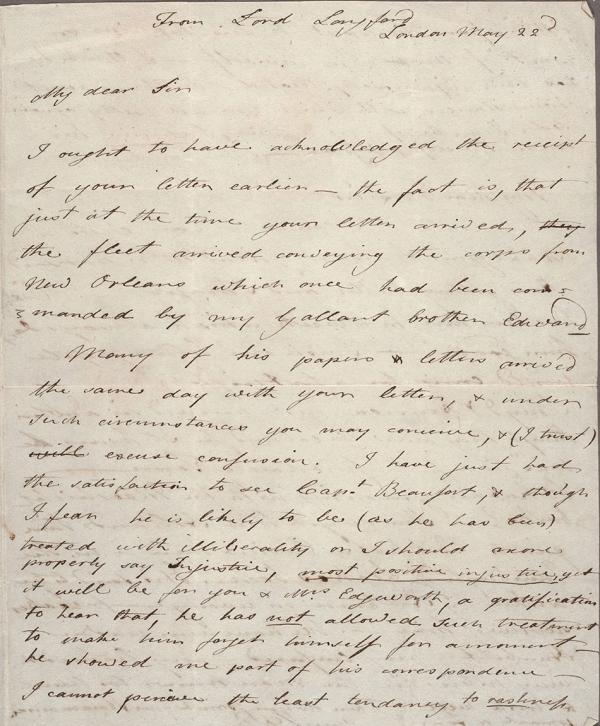 From Lord Longford
London May 22d
My dear Sir
I ought to have acknowledged the receipt
of your letter earlier – the fact is, that
just at the time your letter arrived, they
the fleet arrived conveying the corps from
New Orleans which once had been com=
=manded by my Gallant brother Edward
Many of his papers & letters arrived
the same day with your letter, & under
such circumstances you may conceive, & (I trust)
will excuse confusion. I have just had
the satisfaction to see Capt Beaufort, & though
I fear he is likely to be (as he has been)
treated with illiberality or I should more
properly say Injustice, most positive injustice, yet
it will be for you & Mrs Edgworth, a gratification
to hear that, he has not allowed such treatment
to make him forget himself for a moment –
he showed me part of his correspondence –
I cannot perceive the least tendancy to rashness